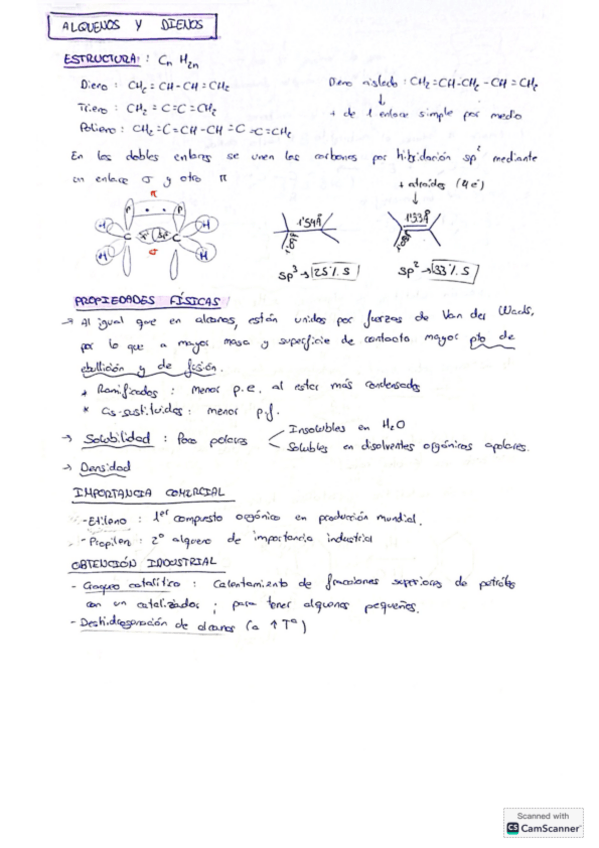 ALQUENOS Y DIENOS
ESTRUCTURA : Cn H2n
Dieno : CH2 = CH - CH = CH2
Dieno aislado : CH2 = CH - CH2 - CH = CH2
↓
Trieno : CH2 = C = C = CH2
+ de 1 enlace simple por medio
Polieno : CH2 = C = CH - CH = C = C = CH2
En los dobles enlaces se unen los carbonos por hibridación sp2 mediante
un enlace σ y otro π
+ atraídos (4 e-)
↓
π
P P
H H
C sp2 sp2 C
H H
σ
1'54Å
1'33Å
sp3 → 25% S
sp2 → 33% S
PROPIEDADES FÍSICAS
→ Al igual que en alcanos, están unidos por fuerzas de Van der Waals,
por lo que a mayor masa y superficie de contacto mayor pto de
ebullición y de fusión.
* Ramificados : menor p.e. al estar más condensados
* Cis-sustituidos : menor p.f.
→ Solubilidad : Poco polares
Insolubles en H2O
Solubles en disolventes orgánicos apolares.
→ Densidad
IMPORTANCIA COMERCIAL
- Etileno : 1er compuesto orgánico en producción mundial.
- Propilen : 2º alqueno de importancia industrial
OBTENCIÓN INDUSTRIAL
- Craqueo catalítico : Calentamiento de fracciones superiores de petróleo
con un catalizador ; para tener alquenos pequeños.
- Deshidrogenación de alcanos (a ↑ Tª)
Scanned with
CS CamScanner